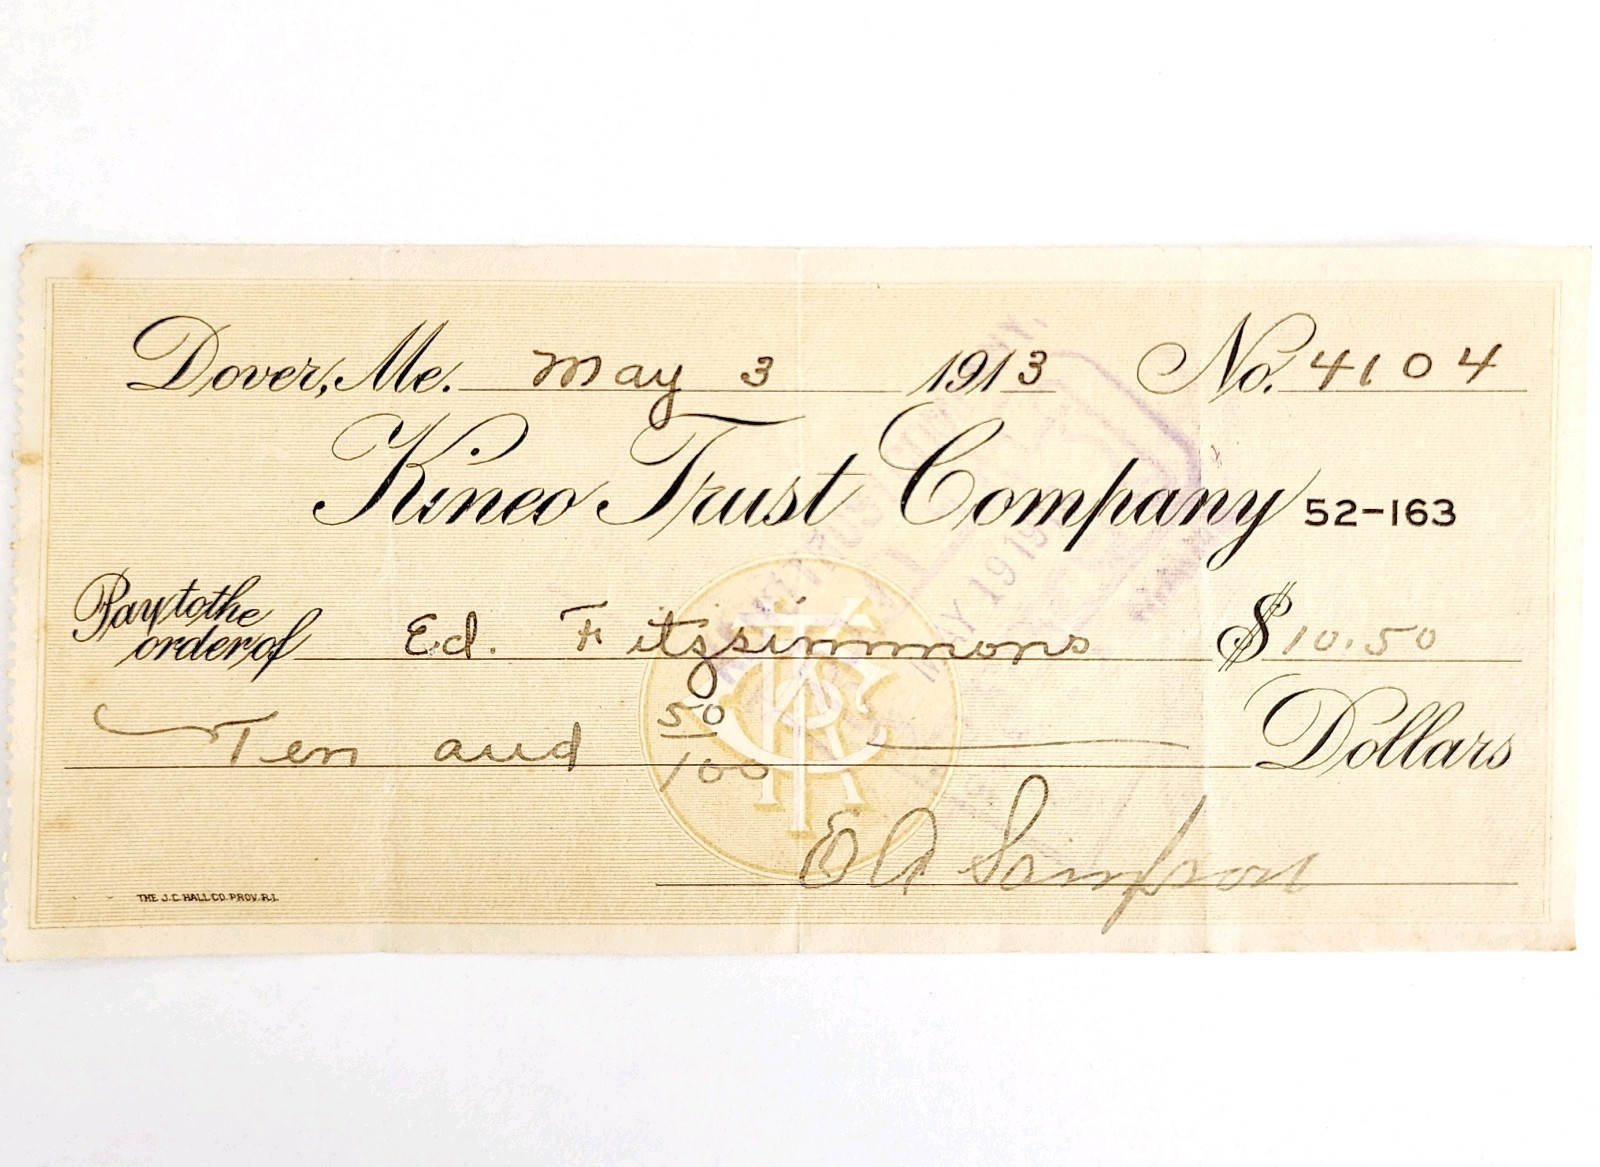 Dover, Me. May 3 1913 No. 4104
Kineo Trust Company 52-163
Pay to the order of Ed. Fitzsimmons $10.50
Ten and 50/100 Dollars
E A Simpson
THE J.C. HALL CO. PROV. R.I.
MAY 19 19